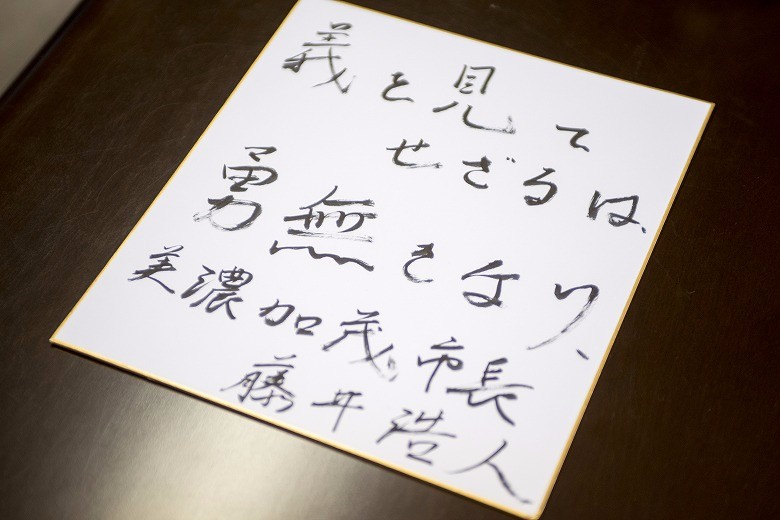 義を見て
せざるは、
勇無きなり、
美濃加茂市長
藤井浩人